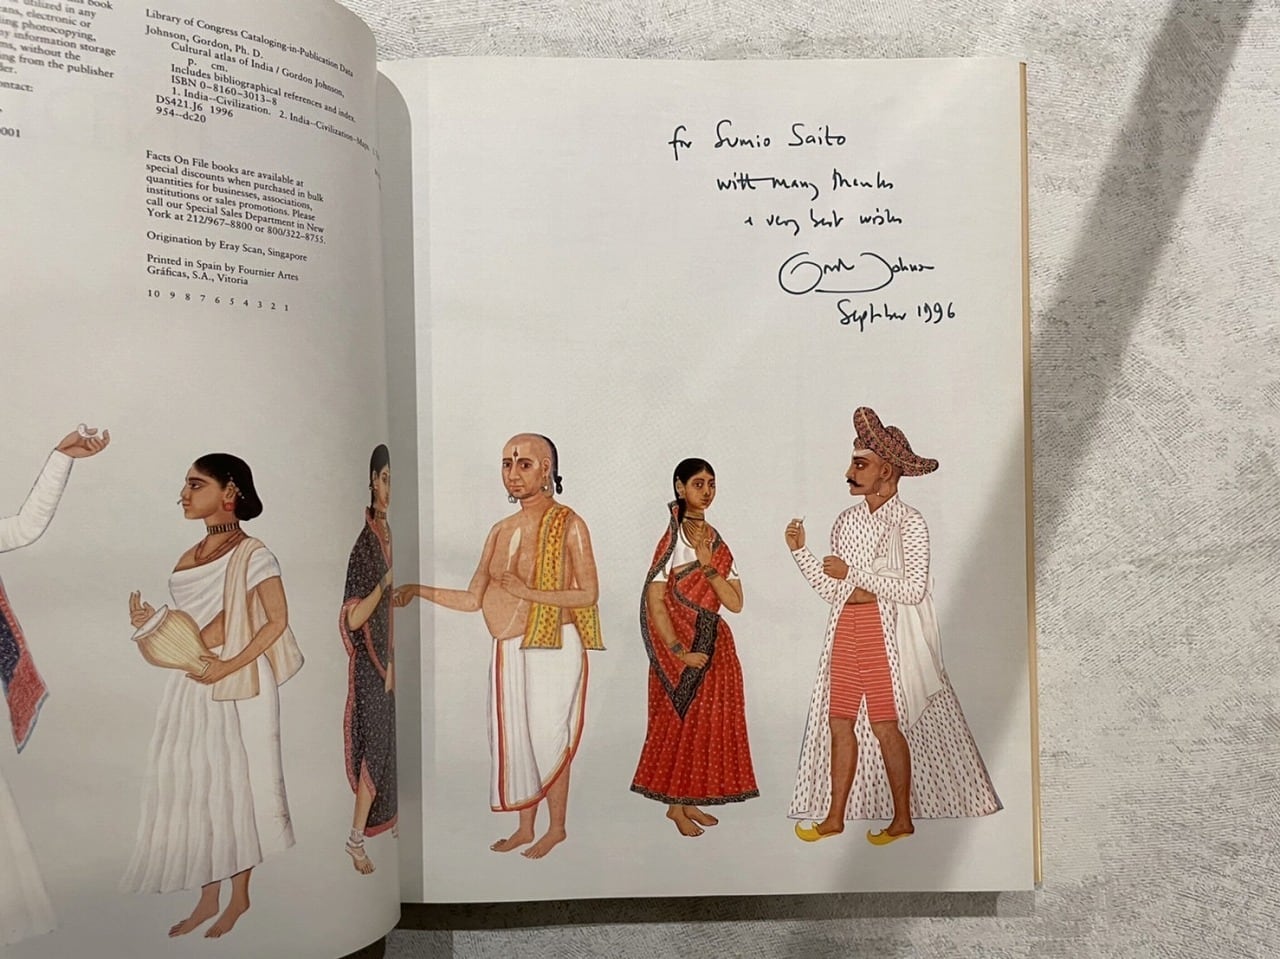 book
utilized in any
ans, electronic or
ing photocopying,
ny information storage
ms, without the
ing from the publisher
er.
ontact:
001
Library of Congress Cataloging-in-Publication Data
Johnson, Gordon, Ph. D.
Cultural atlas of India / Gordon Johnson,
p. cm.
Includes bibliographical references and index.
ISBN 0-8160-3013-8
1. India--Civilization. 2. India--Civilization--Maps.
DS421.J6 1996
954--dc20
Facts On File books are available at
special discounts when purchased in bulk
quantities for businesses, associations,
institutions or sales promotions. Please
call our Special Sales Department in New
York at 212/967-8800 or 800/322-8755.
Origination by Eray Scan, Singapore
Printed in Spain by Fournier Artes
Gráficas, S.A., Vitoria
10 9 8 7 6 5 4 3 2 1
for Sumio Saito
with many thanks
& very best wishes
Gordon Johnson
September 1996